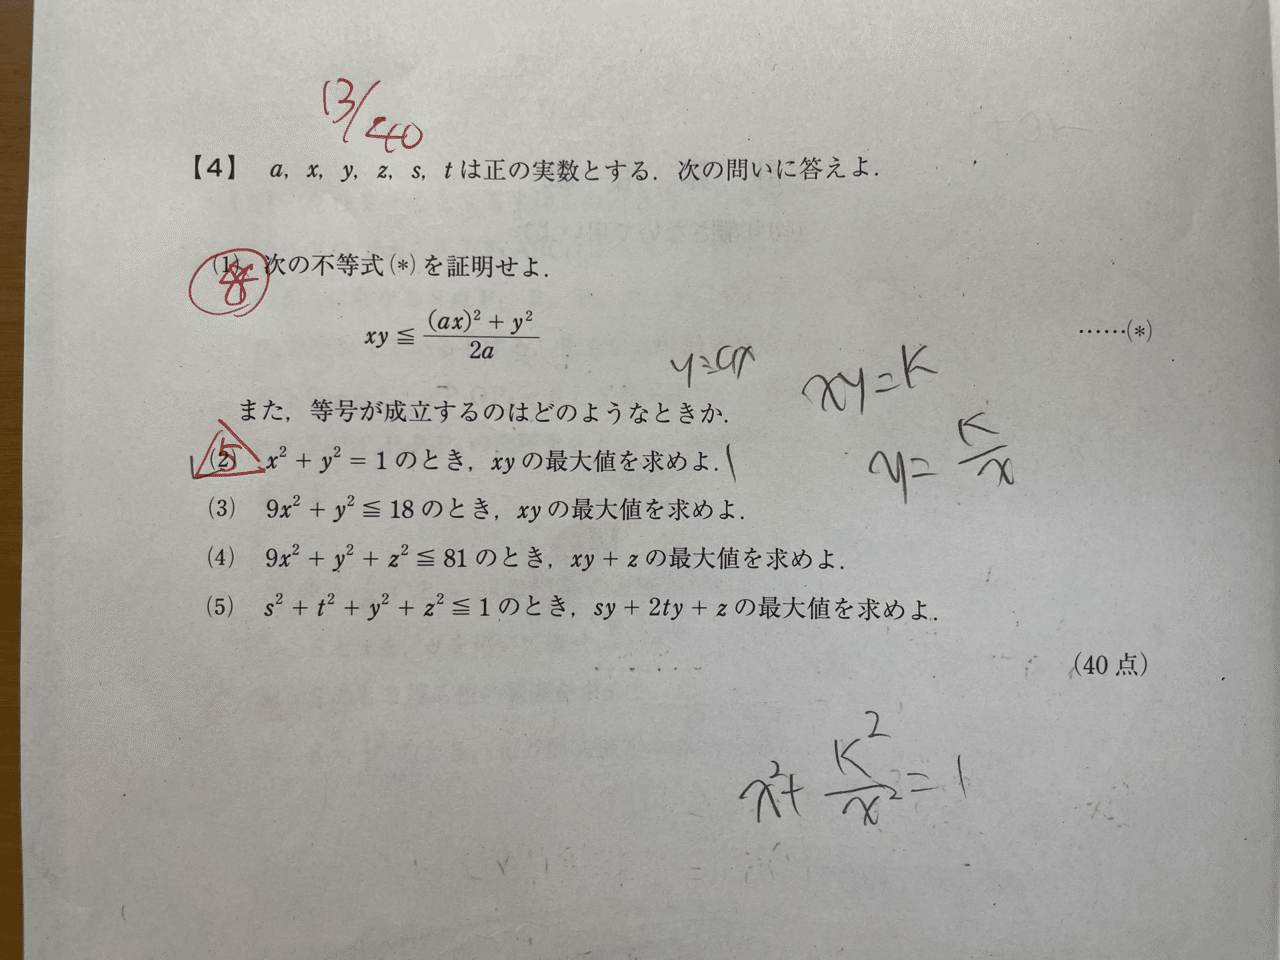 13/40
【4】 a, x, y, z, s, t は正の実数とする．次の問いに答えよ．
(1) 次の不等式(*)を証明せよ．
8
xy ≦ \frac{(ax)² + y²}{2a} ……(*)
y=ax
xy=K
また，等号が成立するのはどのようなときか．
y= \frac{K}{x}
5
(2) x² + y² = 1 のとき，xy の最大値を求めよ．
(3) 9x² + y² ≦ 18 のとき，xy の最大値を求めよ．
(4) 9x² + y² + z² ≦ 81 のとき，xy + z の最大値を求めよ．
(5) s² + t² + y² + z² ≦ 1 のとき，sy + 2ty + z の最大値を求めよ．
(40点)
x²+ \frac{K²}{x²} = 1